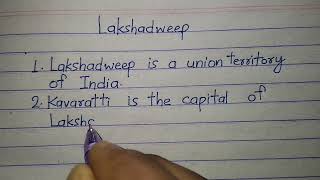 Lakshadweep
1. Lakshadweep is a union territory
of India.
2. Kavaratti is the capital of
Laksh